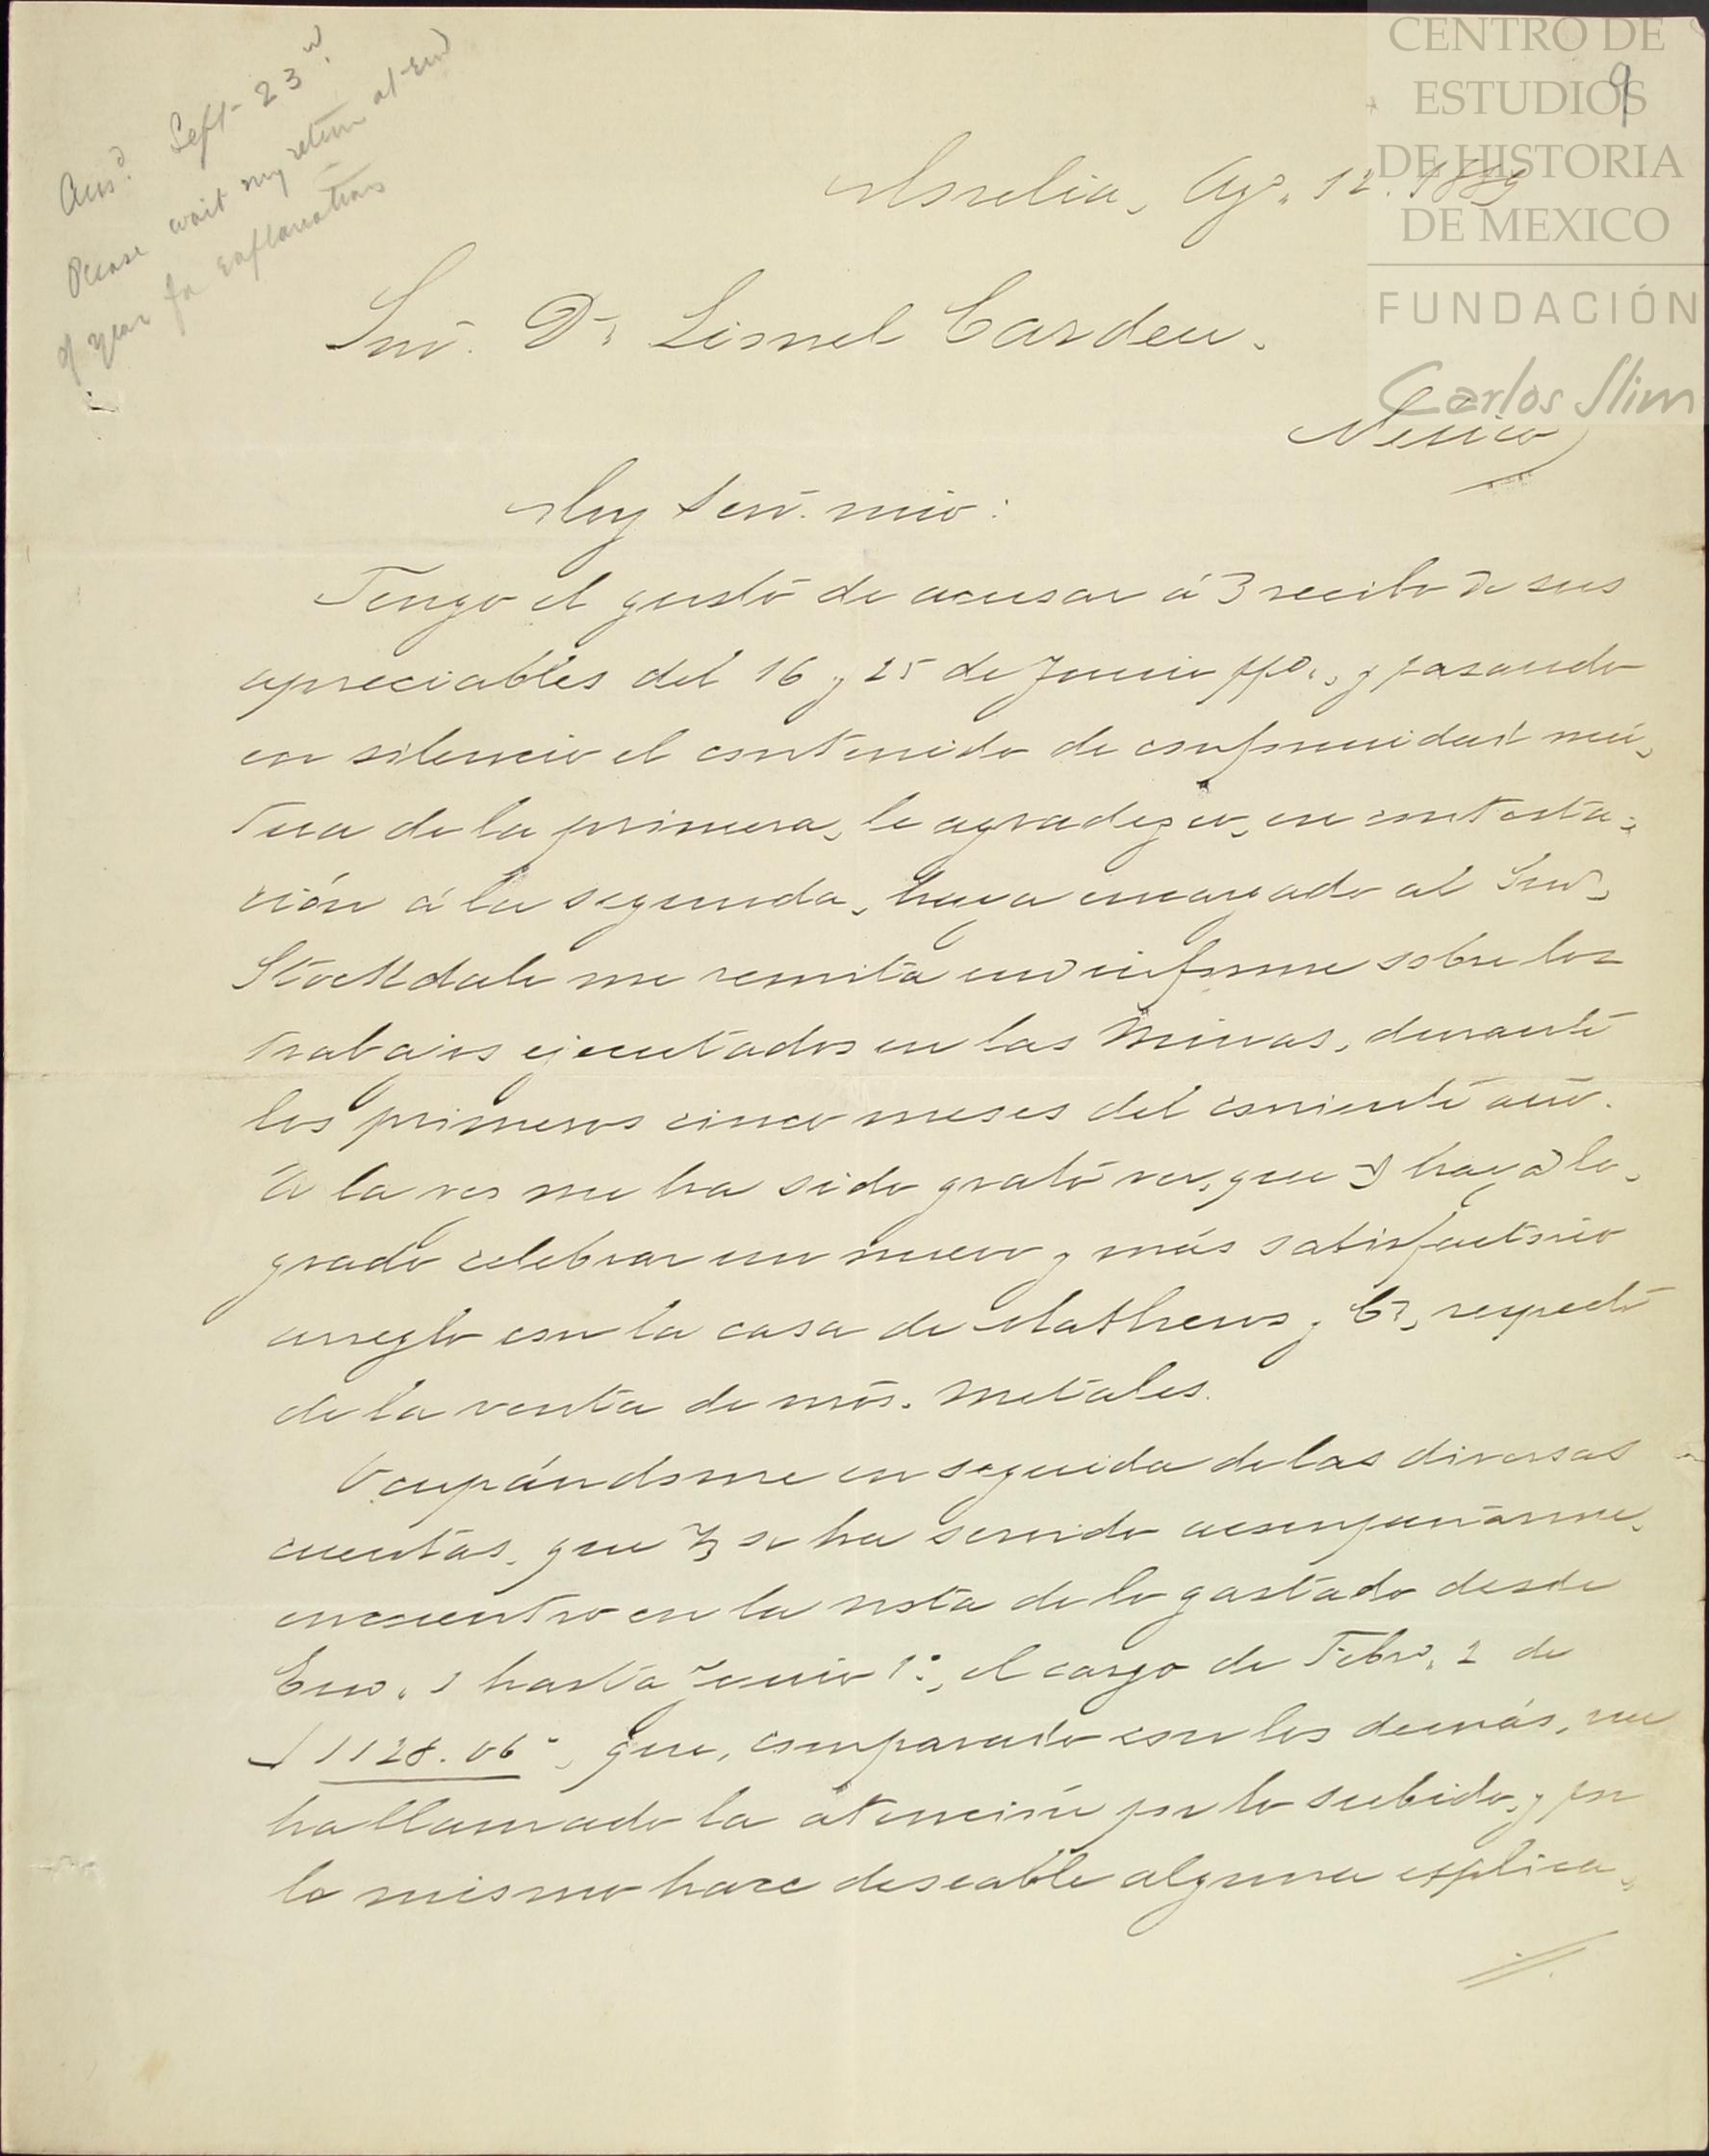 Ans.d Sept. 23.rd
Please wait my return at end
of year for explanations
CENTRO DE
ESTUDIOS
DE HISTORIA
DE MEXICO
FUNDACIÓN
Carlos Slim
9
Morelia, Ag.o 12. 1889
Snr. Dn. Lionel Carden.
Mexico
Muy Señ. mio:
Tengo el gusto de acusar á V recibo de sus
apreciables del 16 y 25 de Junio ppo., y pasando
en silencio el contenido de conformidad mú-
tua de la primera, le agradezco, en contesta-
ción á la segunda, haya encargado al Snr.
Stockdale me remita un informe sobre los
trabajos ejecutados en las Minas, durante
los primeros cinco meses del corriente año.
A la vez me ha sido grato ver, que V haya lo-
grado celebrar un nuevo y más satisfactorio
arreglo con la casa de Matheros y Ca, respecto
de la venta de nros. Metales.
Ocupándome en seguida de las diversas
cuentas, que V se ha servido acompañarme,
encuentro en la nota de lo gastado desde
Ero. 1 hasta Junio 1°, el cargo de Febro. 2 de
$ 1128.06, que, comparado con los demás, me
ha llamado la atención por lo subido, y por
lo mismo hace deseable alguna explica-